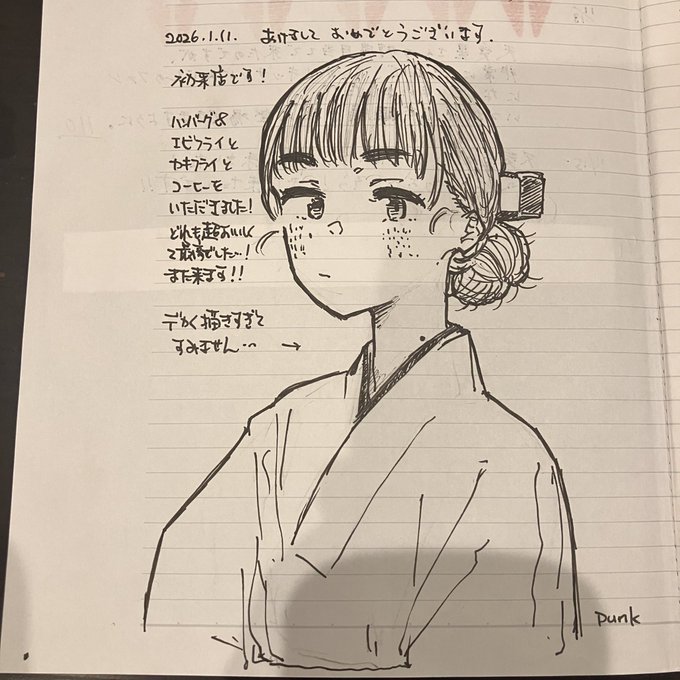 2026.1.11. あけまして おめでとうございます.
初来店です!
ハンバーグ&
エビフライと
カキフライと
コーヒーを
いただきました!
どれも超おいしく
て最高でした…!
また来ます!!
デカく描きすぎて
すみません… →
Punk